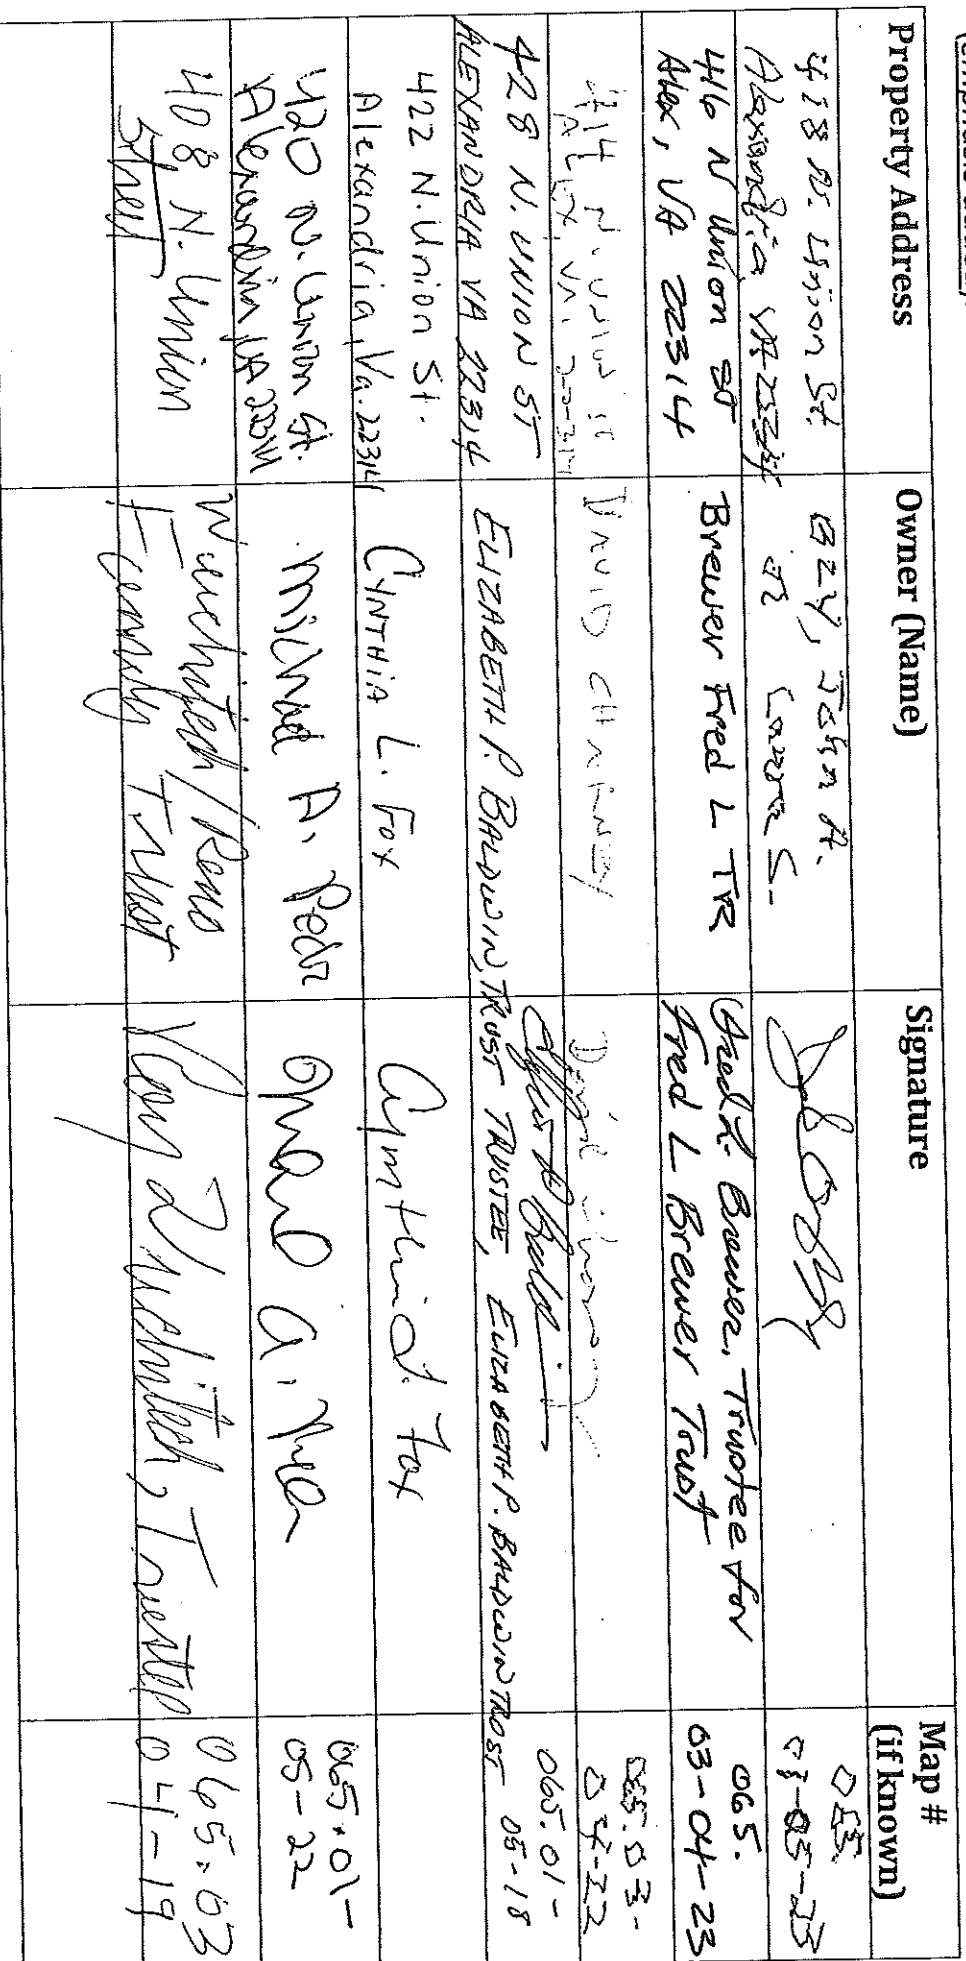 Property Address
Owner (Name)
Signature
Map #
(if known)
418 N. Union St
Alexandria VA
John A.
JR
S.
065
01-05-23
416 N Union St
Alex, VA 22314
Brewer Fred L TR
Fred L. Brewer, Trustee for
Fred L Brewer Trust
065.
03-04-23
414 N. UNION ST
ALEX, VA. 22314
DAVID CHARNEY
David
065.03-
04-22
428 N. UNION ST
ALEXANDRIA VA 22314
ELIZABETH P. BALDWIN, TRUST TRUSTEE, ELIZABETH P. BALDWIN TRUST
065.01-
05-18
422 N. Union St.
Alexandria, Va. 22314
CYNTHIA L. Fox
Cynthia L. Fox
420 N. Union St.
Alexandria, VA 22314
Michael A.
065.01-
05-22
408 N. Union
Street
Family Trust
Trustee
065.03
04-19